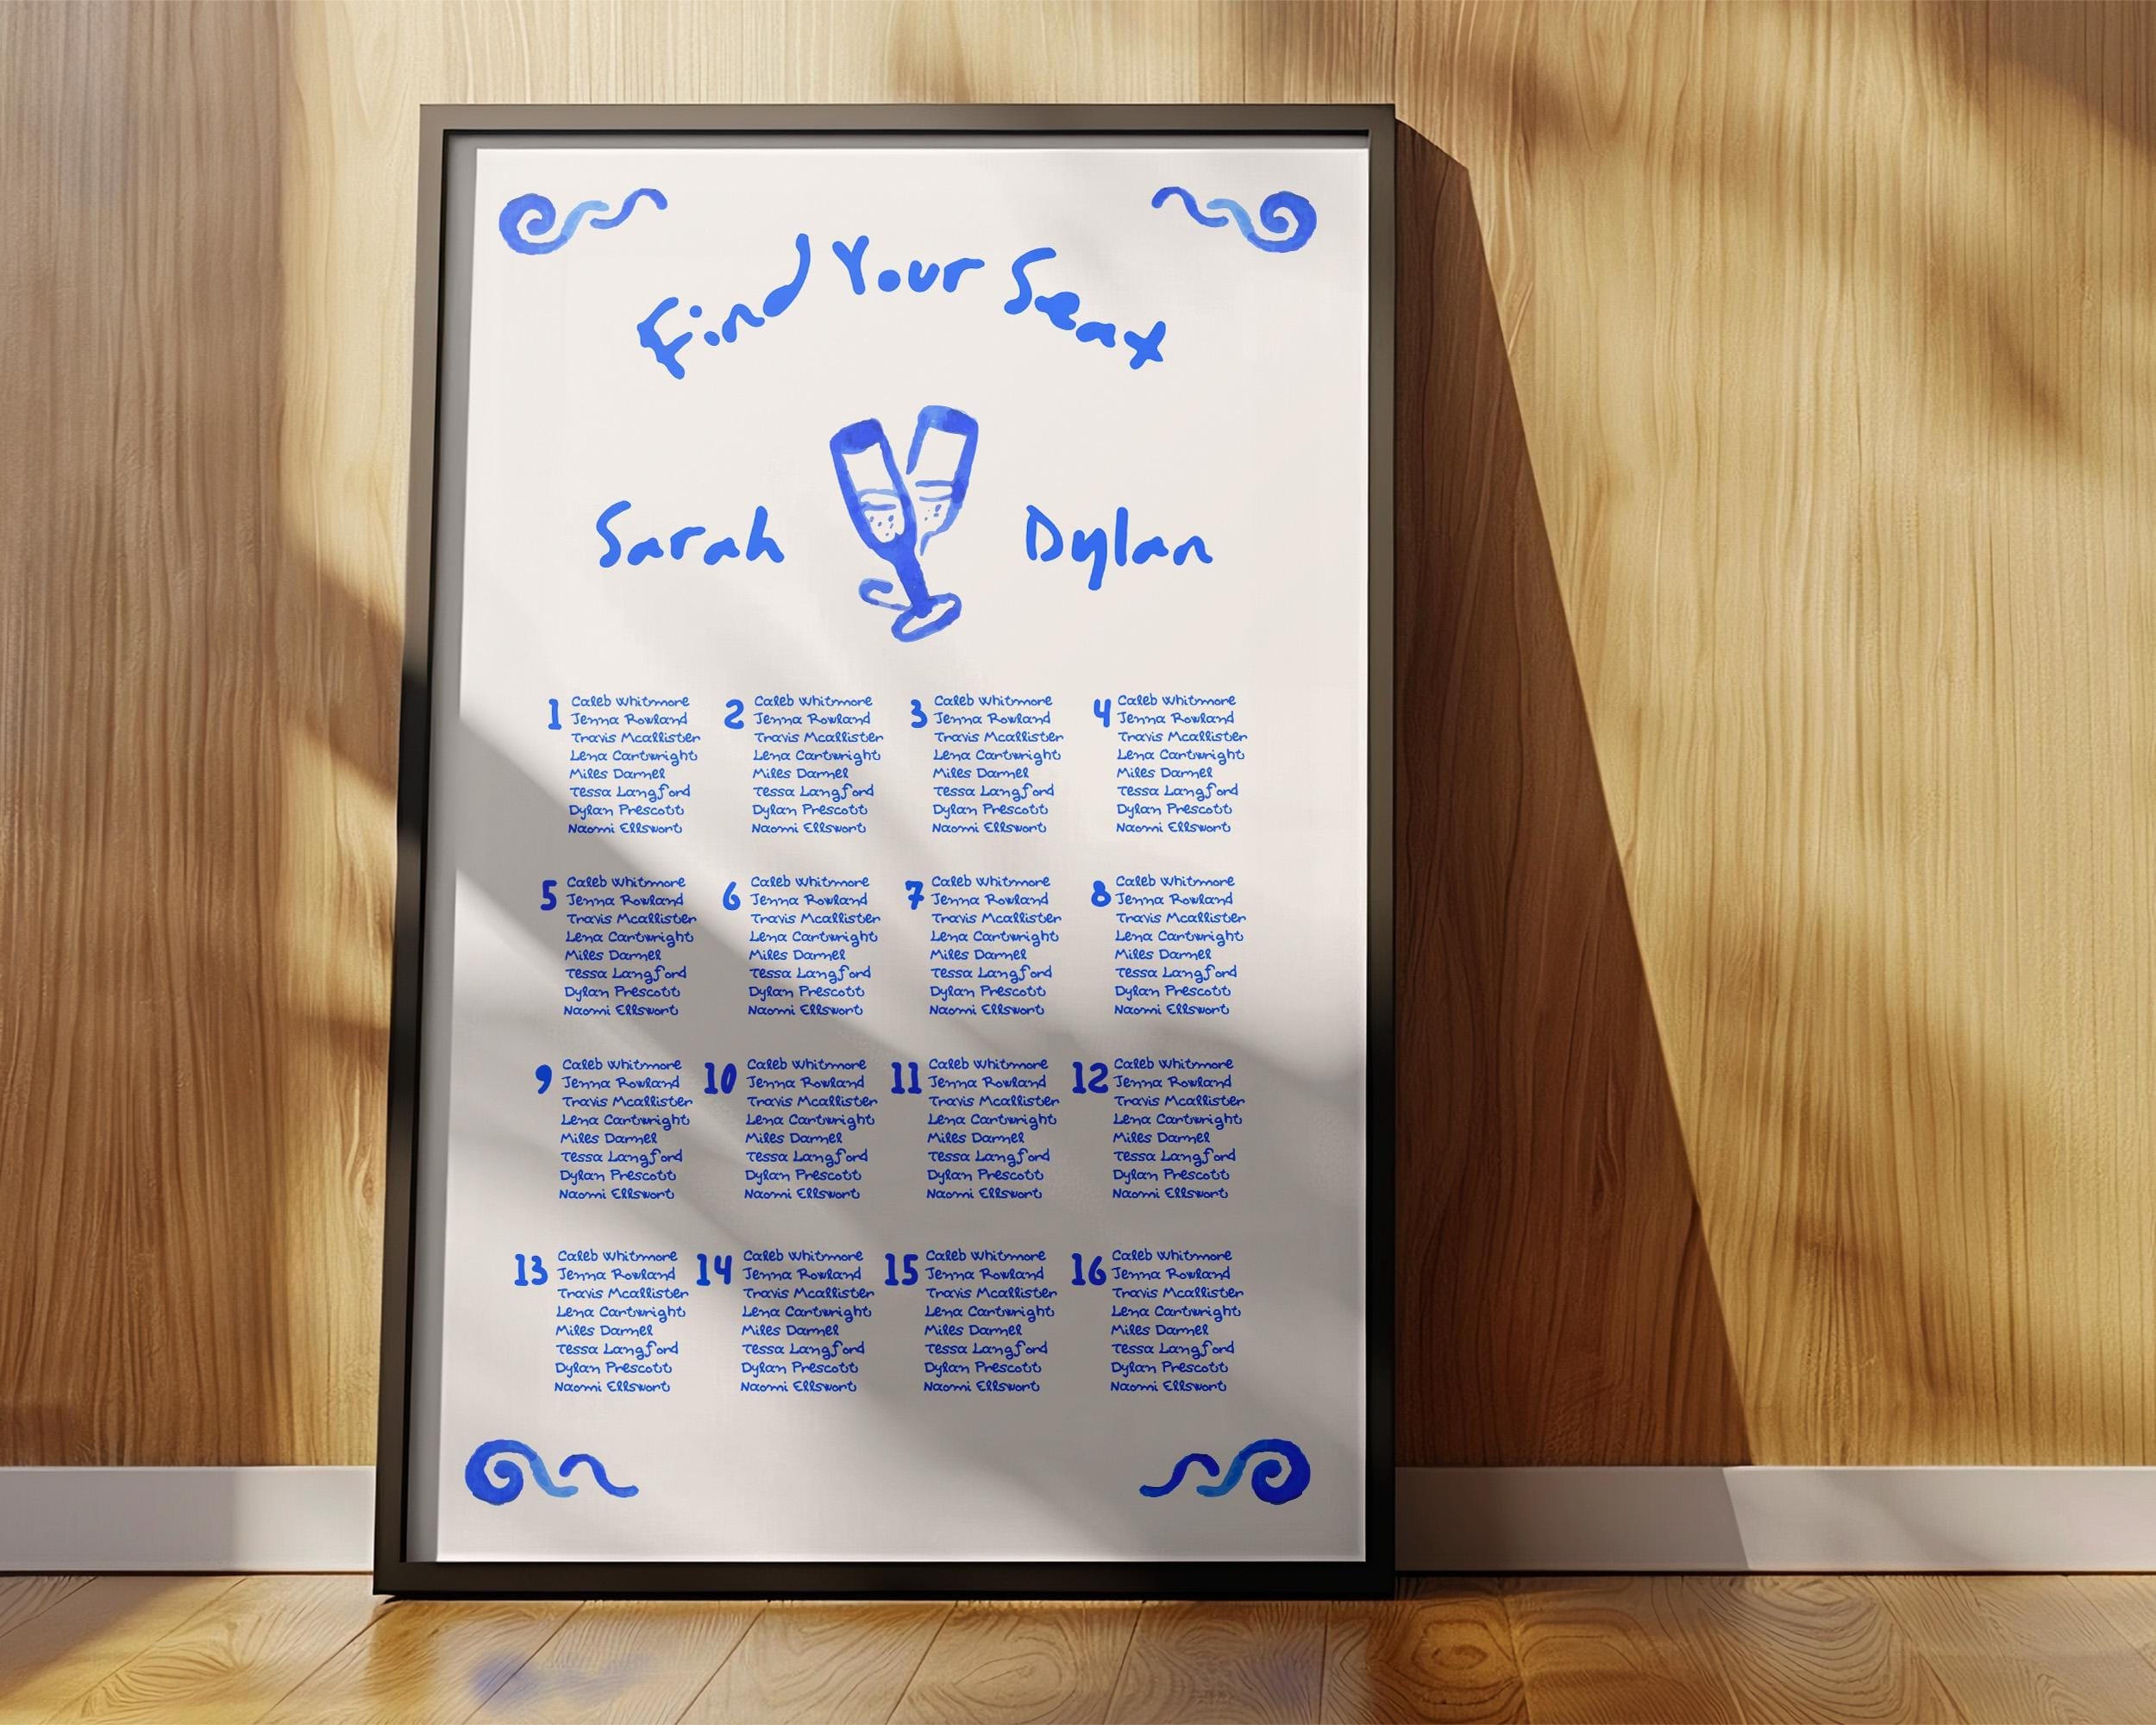 Find Your Seat
Sarah Dylan
1
Caleb Whitmore
Jenna Rowland
Travis Mcallister
Lena Cartwright
Miles Darnel
Tessa Langford
Dylan Prescott
Naomi Ellswort
2
Caleb Whitmore
Jenna Rowland
Travis Mcallister
Lena Cartwright
Miles Darnel
Tessa Langford
Dylan Prescott
Naomi Ellswort
3
Caleb Whitmore
Jenna Rowland
Travis Mcallister
Lena Cartwright
Miles Darnel
Tessa Langford
Dylan Prescott
Naomi Ellswort
4
Caleb Whitmore
Jenna Rowland
Travis Mcallister
Lena Cartwright
Miles Darnel
Tessa Langford
Dylan Prescott
Naomi Ellswort
5
Caleb Whitmore
Jenna Rowland
Travis Mcallister
Lena Cartwright
Miles Darnel
Tessa Langford
Dylan Prescott
Naomi Ellswort
6
Caleb Whitmore
Jenna Rowland
Travis Mcallister
Lena Cartwright
Miles Darnel
Tessa Langford
Dylan Prescott
Naomi Ellswort
7
Caleb Whitmore
Jenna Rowland
Travis Mcallister
Lena Cartwright
Miles Darnel
Tessa Langford
Dylan Prescott
Naomi Ellswort
8
Caleb Whitmore
Jenna Rowland
Travis Mcallister
Lena Cartwright
Miles Darnel
Tessa Langford
Dylan Prescott
Naomi Ellswort
9
Caleb Whitmore
Jenna Rowland
Travis Mcallister
Lena Cartwright
Miles Darnel
Tessa Langford
Dylan Prescott
Naomi Ellswort
10
Caleb Whitmore
Jenna Rowland
Travis Mcallister
Lena Cartwright
Miles Darnel
Tessa Langford
Dylan Prescott
Naomi Ellswort
11
Caleb Whitmore
Jenna Rowland
Travis Mcallister
Lena Cartwright
Miles Darnel
Tessa Langford
Dylan Prescott
Naomi Ellswort
12
Caleb Whitmore
Jenna Rowland
Travis Mcallister
Lena Cartwright
Miles Darnel
Tessa Langford
Dylan Prescott
Naomi Ellswort
13
Caleb Whitmore
Jenna Rowland
Travis Mcallister
Lena Cartwright
Miles Darnel
Tessa Langford
Dylan Prescott
Naomi Ellswort
14
Caleb Whitmore
Jenna Rowland
Travis Mcallister
Lena Cartwright
Miles Darnel
Tessa Langford
Dylan Prescott
Naomi Ellswort
15
Caleb Whitmore
Jenna Rowland
Travis Mcallister
Lena Cartwright
Miles Darnel
Tessa Langford
Dylan Prescott
Naomi Ellswort
16
Caleb Whitmore
Jenna Rowland
Travis Mcallister
Lena Cartwright
Miles Darnel
Tessa Langford
Dylan Prescott
Naomi Ellswort